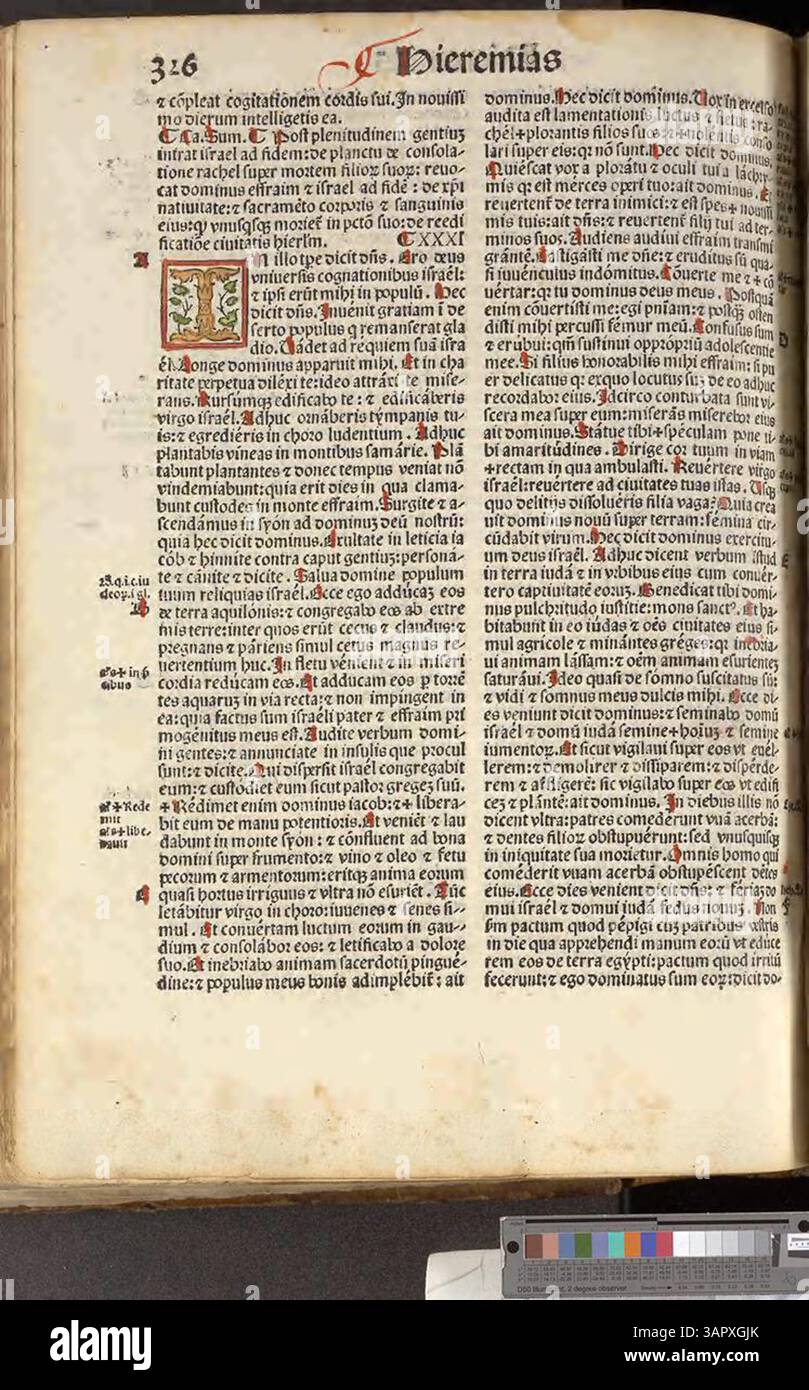 326
Hieremias
⁊ cõpleat cogitationẽ cordis sui. In nouissi
mo dierum intelligetis ea.
Ca. Sum. Post plenitudinem gentiuʒ
intrat israel ad fidem: de planctu ⁊ consola-
tione rachel super mortem filioꝝ suoꝝ: reuo-
cat dominus effraim ⁊ israel ad fidẽ: de xp̃i
natiuitate: ⁊ sacramẽto corporis ⁊ sanguinis
eius: qꝫ vnusqsqꝫ morieť in pctõ suo: de reedi
ficatiõe ciuitatis hierlm. XXXI
A
IN illo tpe dicit dñs. Ero deus
vniuersis cognationibus israẽl:
⁊ ipsi erũt mihi in populũ. Hec
dicit dñs. Inuẽnit gratiam ĩ de
serto populus q̃ remanserat gla
dio. Uádet ad requiem suã isra
ẽl. Longe dominus apparuit mihi. Et in cha
ritate perpetua dilẽxi te: ideo attráxi te mise-
rans. Rursumqꝫ edificabo te: ⁊ edificáberis
virgo israẽl. Adhuc ornáberis tympanis tu-
is: ⁊ egrediéris in choro ludentium. Adhuc
plantabis vineas in montibus samárie. Plã
tabunt plantantes ⁊ donec tempus veniat nõ
vindemiabunt: quia erit dies in qua clama-
bunt custodes in monte effraim. Surgite ⁊ a-
scendámus in syõn ad dominuʒ deũ nostrũ:
quia hec dicit dominus. Exultate in leticia ia
cõb ⁊ hinnite contra caput gentiuʒ: personá-
te ⁊ cánite ⁊ dicite. Salua domine populum
tuum reliquias israẽl. Ecce ego addúcaʒ eos
de terra aquilónis: ⁊ congregabo eos ab extre
mis terre: inter quos erũt cecus ⁊ claudus: ⁊
pregnans ⁊ páriens simul cetus magnus re-
uertentium huc. In fletu vénient ⁊ in miseri
cordia redúcam eos. Et adducam eos p torrẽ
tes aquaruʒ in via recta: ⁊ non impingent in
ea: quia factus sum israéli pater ⁊ effraim pri
mogénitus meus est. Audite verbum domi-
ni gentes: ⁊ annunciate in insulis que procul
sunt: ⁊ dicite. Qui dispersit israẽl congregabit
eum: ⁊ custódiet eum sicut pastor gregeʒ suũ.
+ Rédimet enim dominus iacob: ⁊ + libera-
bit eum de manu potentioris. Et veniẽt ⁊ lau
dabunt in monte syõn: ⁊ cõnfluent ad bona
domini super frumento: ⁊ vino ⁊ oleo ⁊ fetu
pecorum ⁊ armentorum: eritqꝫ anima eorum
quasi hortus irriguus ⁊ vltra nõ esuriẽt. Tũc
letábitur virgo in choro: iuuenes ⁊ senes si-
mul. Et conuértam luctum eorum in gau-
dium ⁊ consolábor eos: ⁊ letificabo a dolore
suo. Et inebriabo animam sacerdotũ pingué-
dine: ⁊ populus meus bonis adimplébiť: ait
B
C
dominus. Hec dicit dominus. Uox in excelso
audita est lamentationis luctus ⁊ fletus: ra-
chẽl + plorantis filios suos: ⁊ + nolentis conso
lari super eis: qꝛ nõ sunt. Hec dicit dominus.
Quiéscat vox a ploratu ⁊ oculi tui a láchry-
mis qꝛ est merces operi tuo: ait dominus. Et
reuertenť de terra inimici: ⁊ est spes + nouissi
mis tuis: ait dñs: ⁊ reuertenť filij tui ad ter-
minos suos. Audiens audiui effraim transmi
grántẽ. Castigásti me dñe: ⁊ eruditus sũ qua-
si iuuẽnculus indómitus. Cõuerte me ⁊ + cõ
uértar: qꝛ tu dominus deus meus. Postquã
enim cõuertisti me: egi pniam: ⁊ postqꝫ osten
disti mihi percussi fémur meũ. Confusus sum
⁊ erubui: qm̃ sustinui oppropriũ adolescentie
mee. Si filius honorabilis mihi effraim: si pu
er delicatus qꝛ exquo locutus suʒ de eo adhuc
recordabor eius. Idcirco conturbata sunt vi-
scera mea super eum: miserãs miserebor eius
ait dominus. Státue tibi + spéculam pone ti-
bi amaritúdines. Dirige cor tuum in viam
+ rectam in qua ambulasti. Reuértere virgo
israẽl: reuértere ad ciuitates tuas istas. Usqꝫ
quo delitijs dissoluéris filia vaga? Quia crea
uit dominus nouũ super terram: fémina cir-
cũdabit virum. Hec dicit dominus exercitu-
um deus israẽl. Adhuc dicent verbum istud
in terra iudá ⁊ in vrbibus eius cum conuér-
tero captiuitaté eoruʒ. Benedicat tibi domi-
nus pulchritudo iustitie: mons sanctꝰ. Et ha-
bitabunt in eo iúdas ⁊ oẽs ciuitates eius si-
mul agricole ⁊ minántes gréges: qꝛ inébria-
ui animam lássam: ⁊ oẽm animam esurientẽ
saturáui. Ideo quasi de sómno suscitatus sũ:
⁊ vidi ⁊ somnus meus dulcis mihi. Ecce di-
es veniunt dicit dominus: ⁊ seminabo domũ
israẽl ⁊ domũ iudá semine + hoíuʒ ⁊ semine
iumentoꝝ. Et sicut vigilaui super eos vt euél-
lerem: ⁊ demolirer ⁊ dissiparem: ⁊ dispérde-
rem ⁊ affligerẽ: sic vigilabo super eos vt edifi
ceʒ ⁊ plántẽ: ait dominus. In diebus illis nõ
dicent vltra: patres comedérunt vuã acerbã:
⁊ dentes filioꝝ obstupuérunt: sed vnusquisqꝫ
in iniquitate sua morietur. Omnis homo qui
coméderit vuam acerbã obstupéscent dẽtes
eius. Ecce dies venient dicit dñs: ⁊ fériaʒ do
mui israẽl ⁊ domui iudá fedus nouuʒ. Non
s̃m pactum quod pépigi cuʒ patribus vestris
in die qua apprehendi manum eorũ vt edúce
rem eos de terra egýpti: pactum quod irritũ
fecerunt: ⁊ ego dominatus sum eoꝝ: dicit do-
D
E
alamy
Image ID: 3APXGJK
www.alamy.com